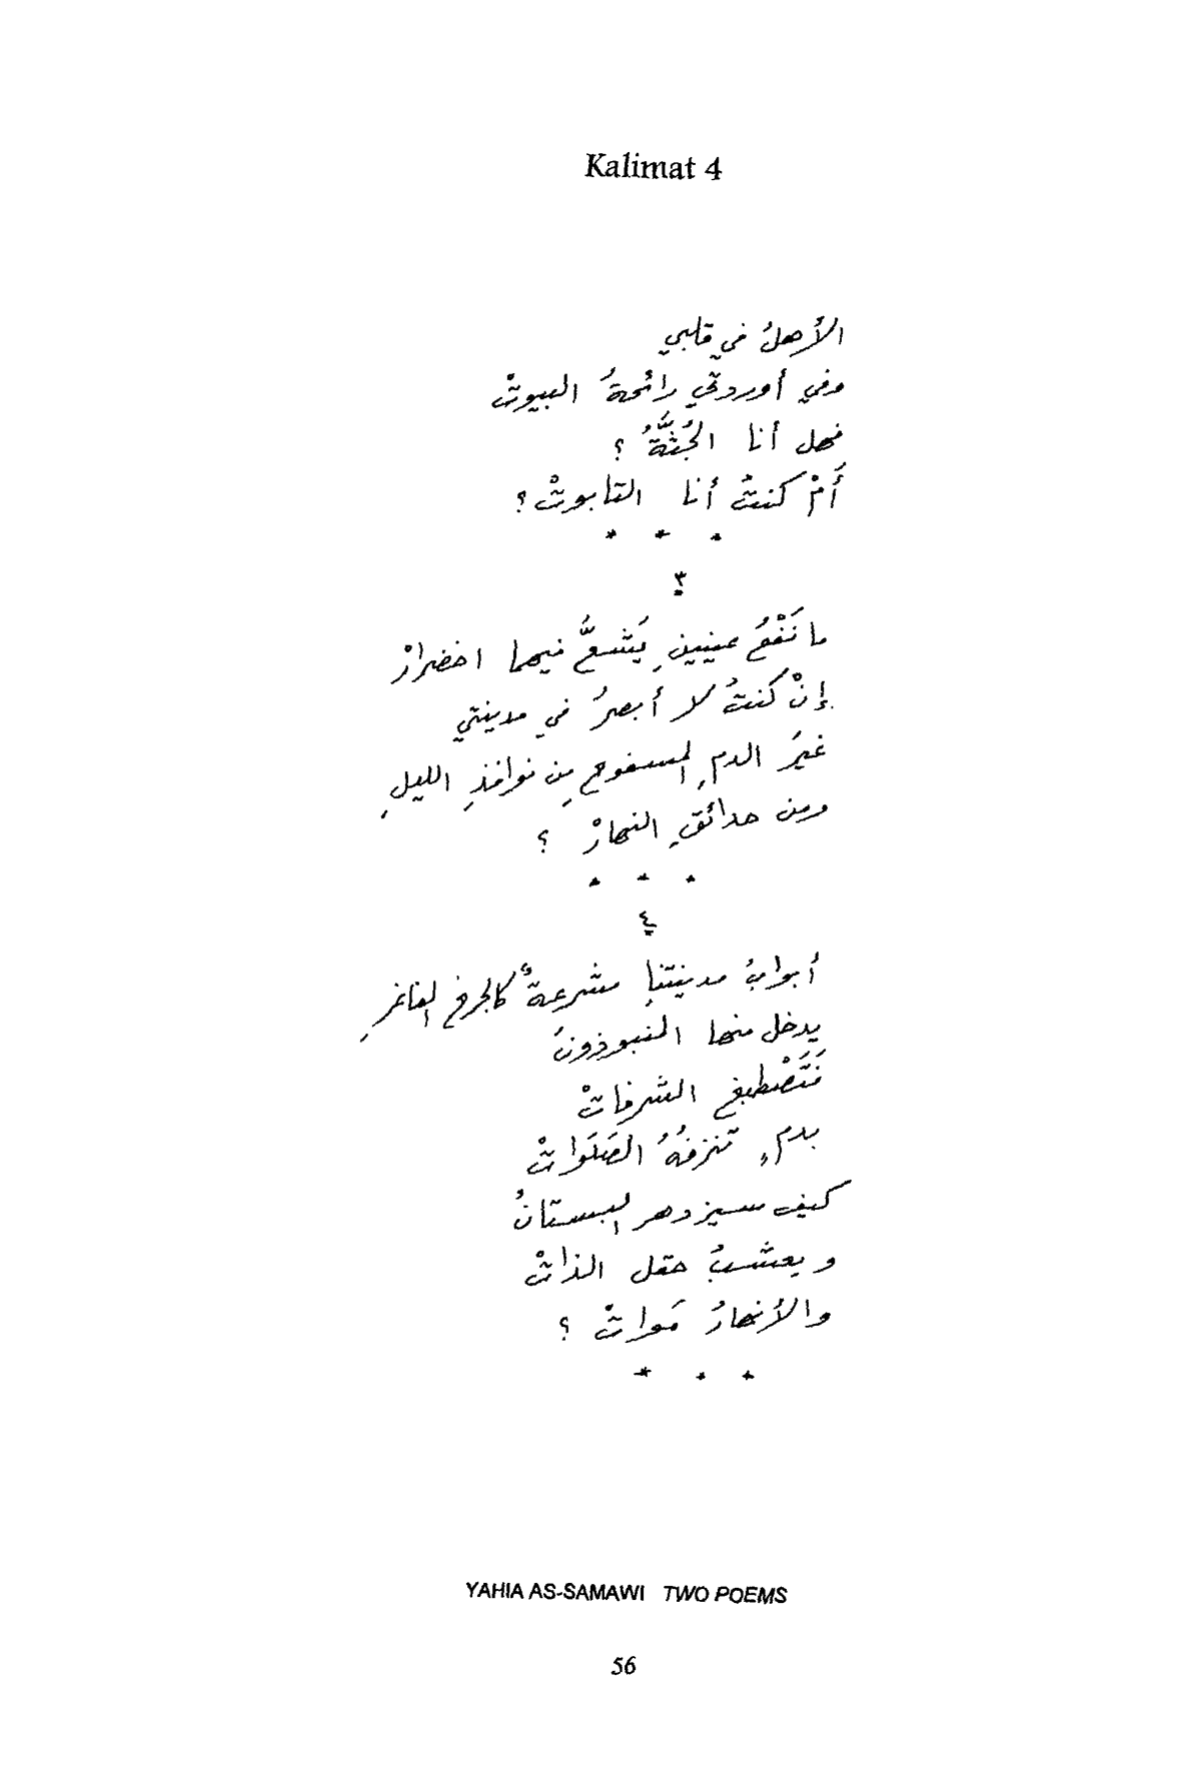 Kalimat 4
الأهلُ في قلبي
وفي أوردتي رائحةُ البيوتْ
فهل أنا الجُثَّةُ ؟
أَمْ كنتُ أنا التابوتْ ؟
* * *
٣
ما نَفْعُ عينينِ يَشعُّ فيهما اخضرارْ
إنْ كنتُ لا أبصرُ في مدينتي
غيرَ الدمِ المسفوحِ من نوافذِ الليلِ
ومن حدائقِ النهارْ ؟
* * *
٤
أبوابُ مدينتنا مشرعةٌ كالجرحِ الفاغرِ
يدخل منها المنبوذونَ
فَتَصْطبغ الشرفاتْ
بدمٍ تنزفُهُ الصَلَواتْ
كيف سيزدهر البستانُ
ويعشبُ حقل الذاتْ
والأنهارُ مَواتْ ؟
* * *
YAHIA AS-SAMAWI TWO POEMS
56